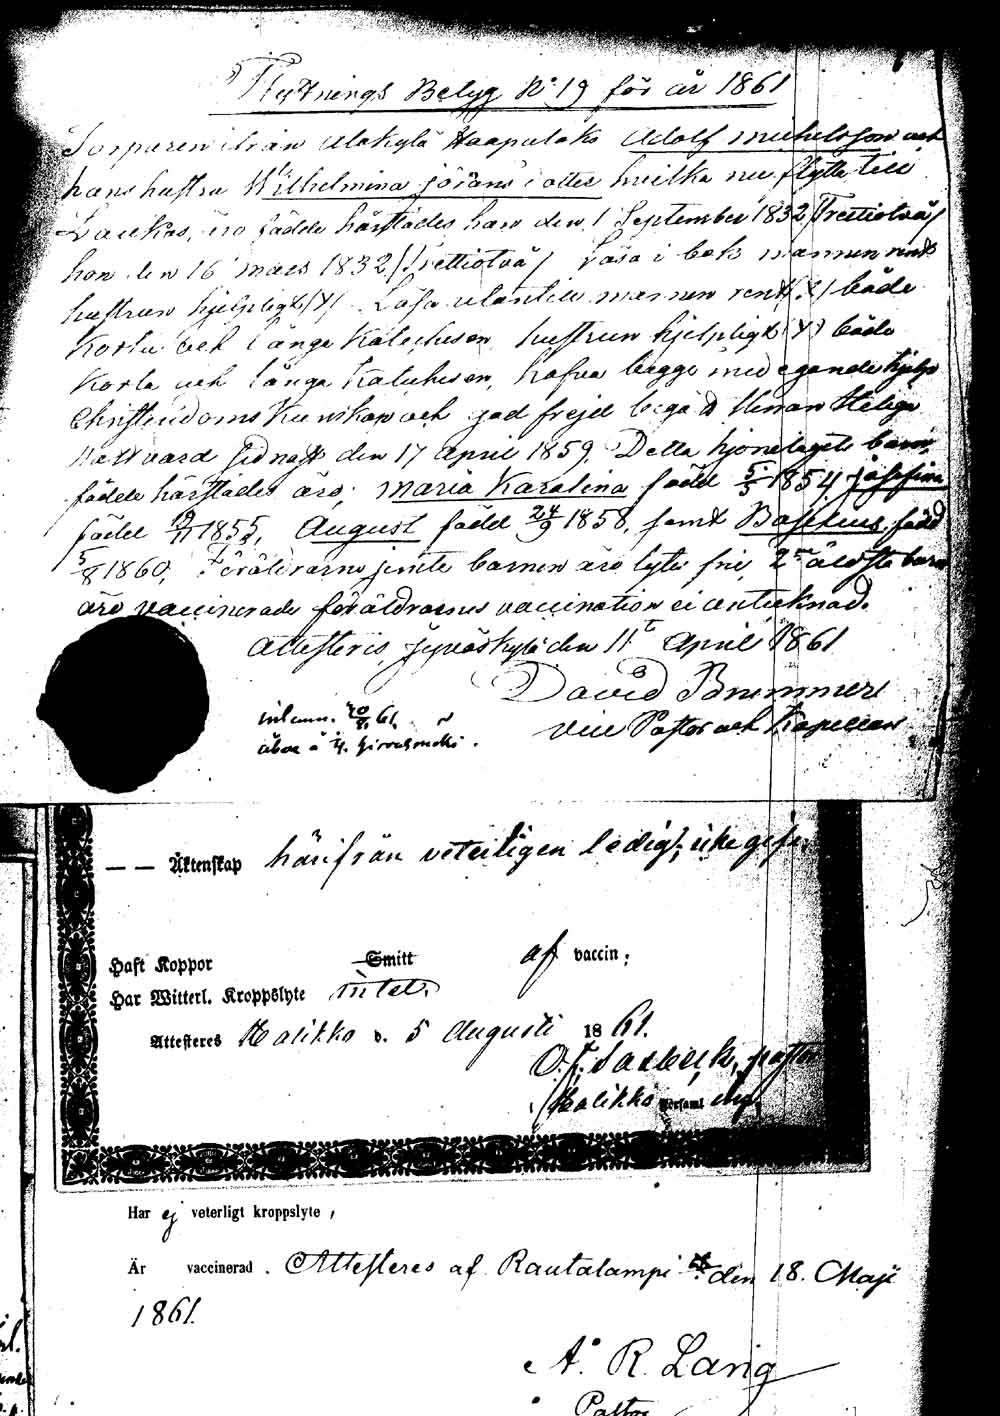 Flyttnings Betyg No 19 för år 1861
Torparen ifrån Alakylä Haapalaks Adolf Michelsson och
hans hustru Wilhelmina Jöransdotter hvilka nu flytta till
Laukas, äro födde härstädes han den 1 September 1832 /Trettiotvå/
hon den 16 Mars 1832 /Trettiotvå/ Läsa i bok mannen rent
hustrun hjelpligt /x/ Läsa utantill mannen rent /x/ både
Korta och långa Katechesen, hustrun hjelpligt /x/ både
Korta och långa Katechesen, hafva begge
Christendoms Kunskap och god frejd begå d Herrans Heliga
Nattvard sednast den 17 April 1859, Detta hjonelagets barn,
födde härstädes äro; Maria Karolina född 5/5 1854 Josefina
född 9/11 1855, August född 24/9 1858, samt Basilius född
5/8 1860, Föräldrarne jemte barnen äro lytes fri, 2ne äldsta barn
äro vaccinerade föräldrarnes vaccination ei antecknad.
Attesteris, Jyväskylä den 11t April 1861
David Brummer
Vice Pastor och Kapellan
inlemn. 20/8 61.
åboe å
— — Äktenskap härifrån veterligen ledig,
Haft Koppor Smitt af vaccin;
Har Witterl. Kroppslyte intet.
Attesteres Halikko d. 5 Augusti 1861.
pastor
Halikko Församl.
Har ej veterligt kroppslyte,
Är vaccinerad. Attesteres af Rautalampi den 18. Maji
1861.
A. R. Lang
Pastor